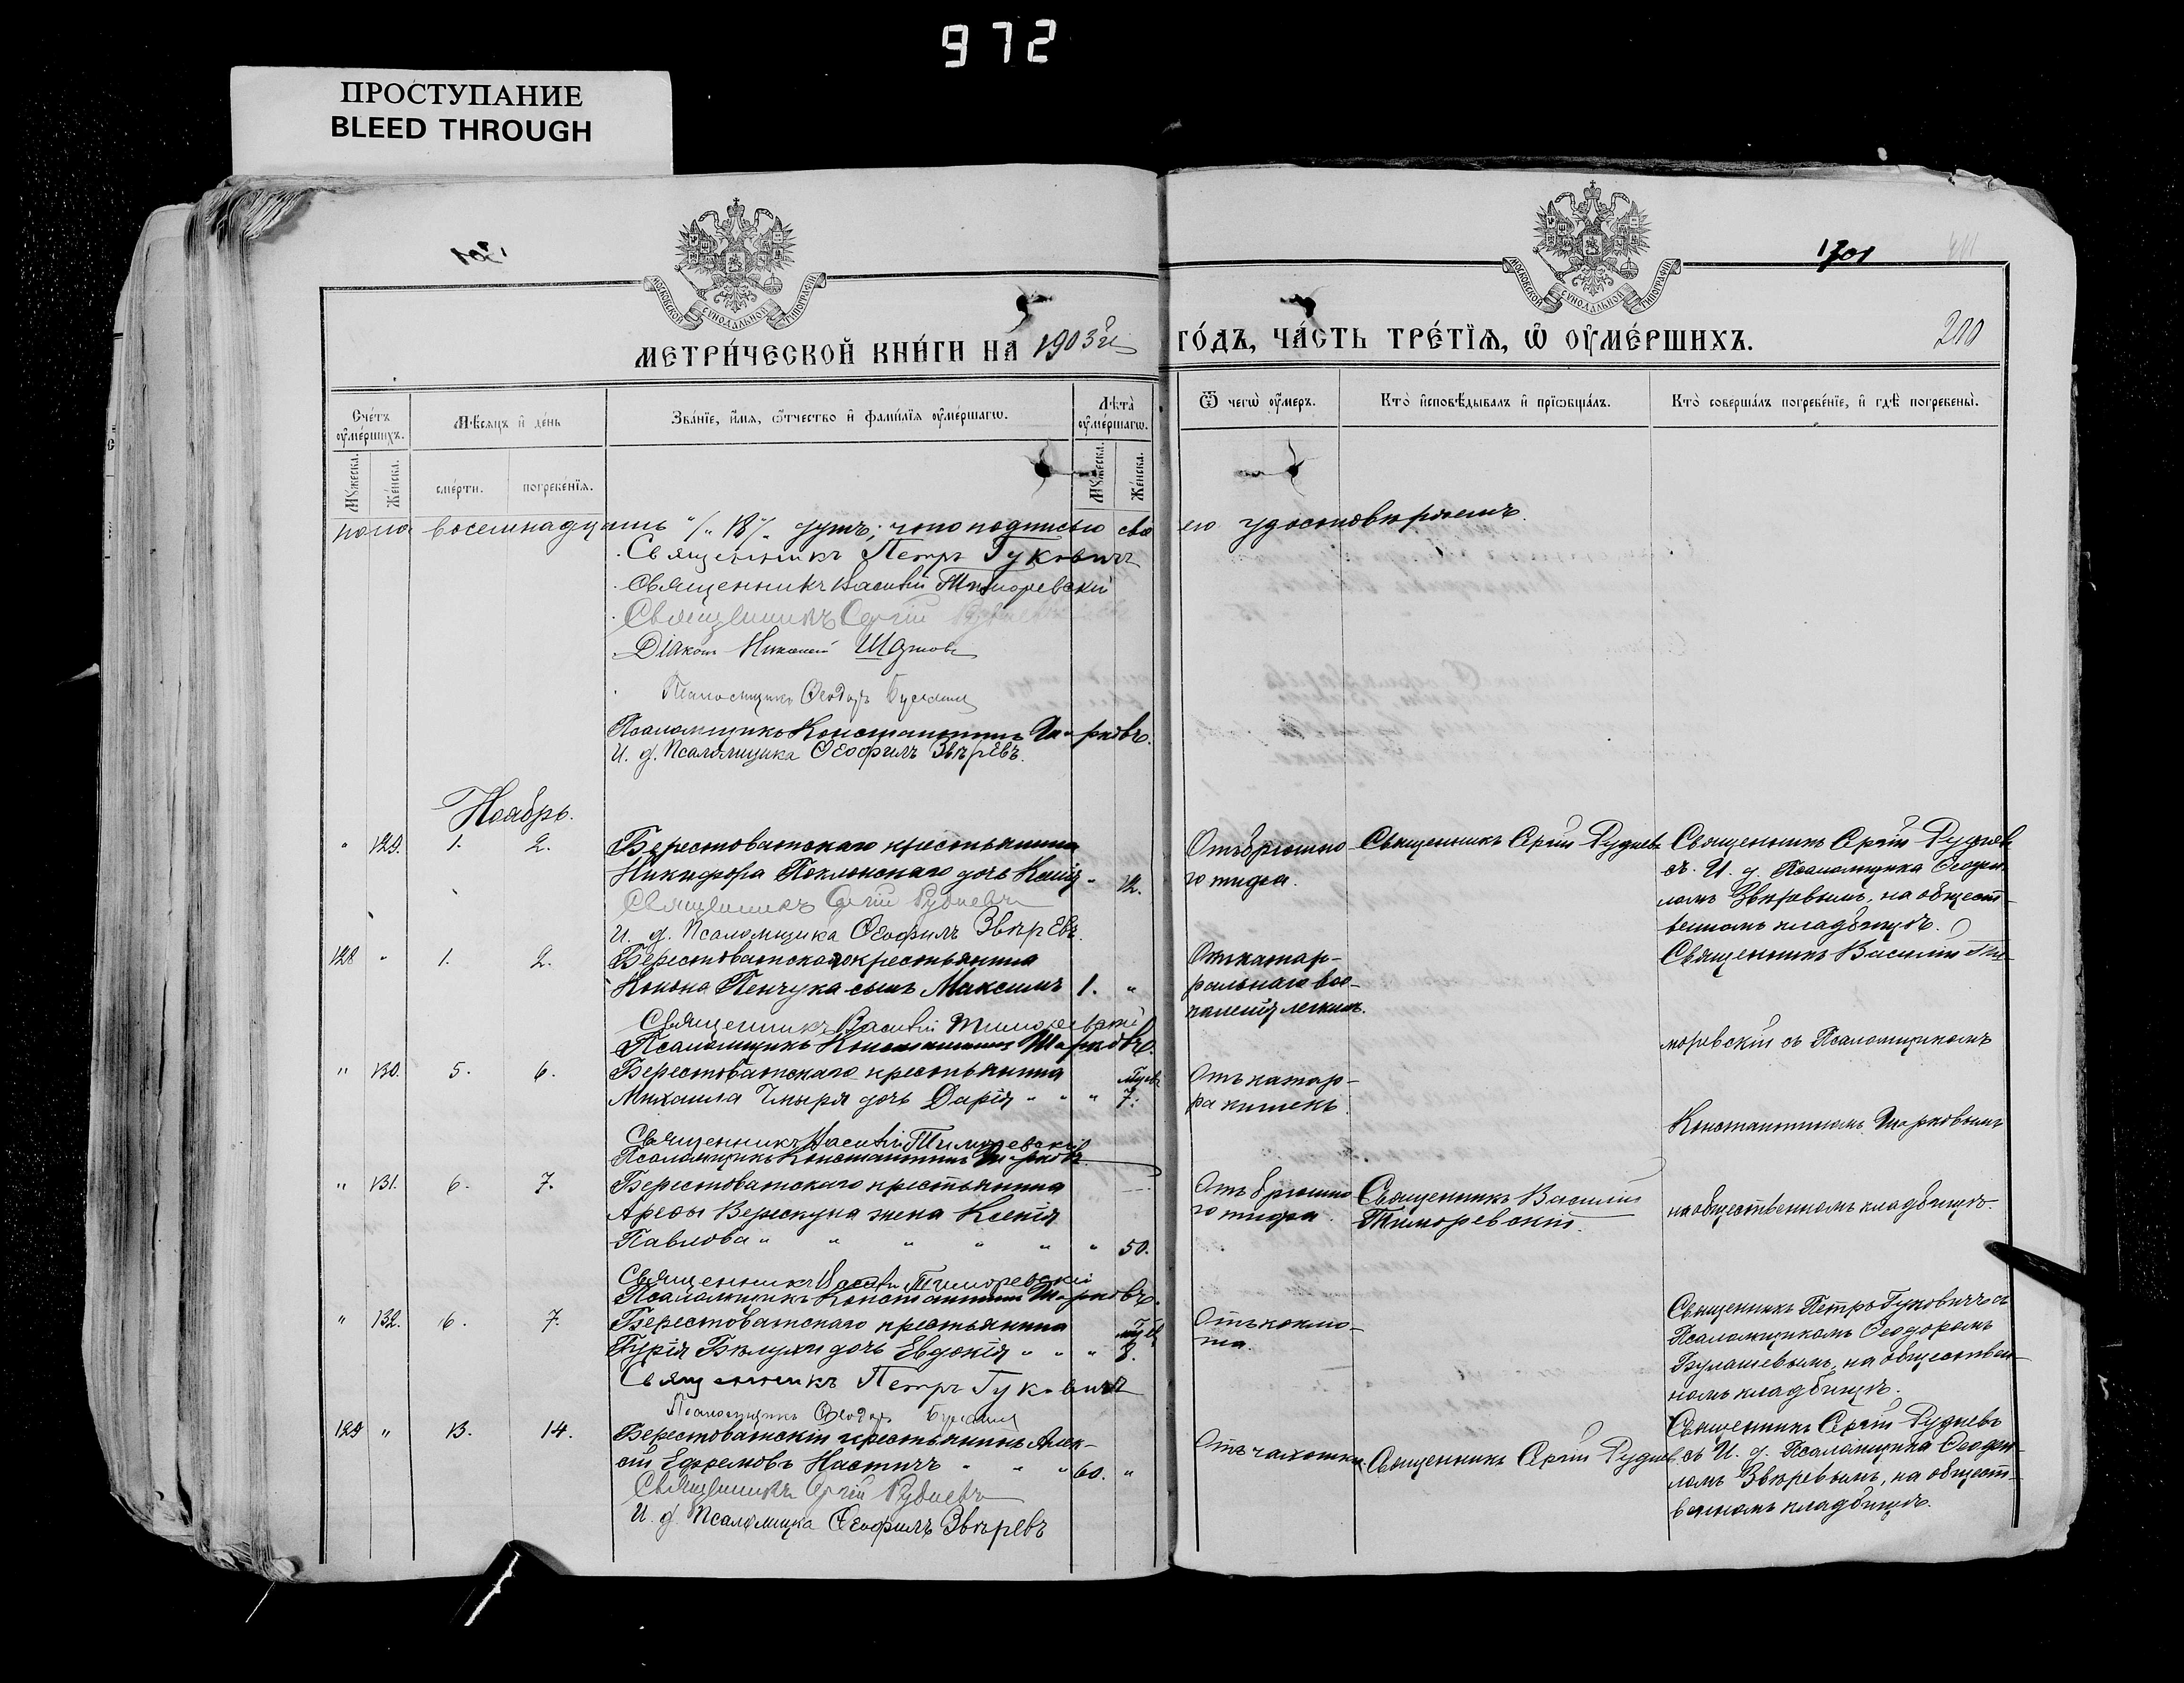 972
ПРОСТУПАНИЕ
BLEED THROUGH
МОСКОВСКОЙ СѴНОДАЛЬНОЙ ТИПОГРАФІИ
МОСКОВСКОЙ СѴНОДАЛЬНОЙ ТИПОГРАФІИ
1701
200
МЕТРИ́ЧЕСКОЙ КНИ́ГИ НА 1903й ГО́ДЪ, ЧА́СТЬ ТРЕ́ТЇѦ, Ѿ ОУ҆МЕ́РШИХЪ.
Сче́тъ оу҆ме́ршихъ.
Мѣ́сяцъ и҆ де́нь
Зва́нїе, и҆́мѧ, ѻ҆́тчество и҆ фами́лїѧ оу҆ме́ршагѡ.
Лѣта̀ оу҆ме́ршагѡ.
Ѿ чегѡ̀ оу҆́меръ.
Кто̀ и҆сповѣ́дывалъ и҆ прїѡбща́лъ.
Кто̀ соверша́лъ погребе́нїе, и҆ гдѣ̀ погребены̀.
Мꙋ́жеска.
Же́нска.
сме́рти.
погребе́нїѧ.
Мꙋ́жеска.
Же́нска.
пола восемнадцать /„18„/ душъ; что подписью своею удостовѣряемъ.
Священникъ Петръ Гуковичъ
Священникъ Василій Тиморевскій
Священникъ Сергій Рудневъ
Діаконъ Николай
Псаломщикъ Ѳеодоръ Булашевъ
Псаломщикъ Константинъ Шарковъ.
И. д. Псаломщика Ѳеофилъ Звѣревъ.
Ноябрь.
„ 129. 1. 2. Берестоватскаго крестьянина
Никифора Поклонскаго дочь Ксенія „ 12.
Священникъ Сергій Рудневъ
И. д. Псаломщика Ѳеофилъ Звѣревъ.
Отъ брюшно
го тифа.
Священникъ Сергій Рудневъ
Священникъ Сергій Рудневъ
съ И. д. Псаломщика Ѳеофи-
ломъ Звѣревымъ, на общест-
венномъ кладбищѣ.
128 „ 1. 2. Берестоватскаго крестьянина
Конона Пенчука сынъ Максимъ 1. „
Священникъ Василій Тиморевскій
Псаломщикъ Константинъ Шарковъ.
Отъ катар-
ральнаго вос-
паленія легкихъ.
Священникъ Василій Ти-
моревскій съ Псаломщикомъ
„ 130. 5. 6. Берестоватскаго крестьянина
Михаила Чмыря дочь Дарія „ „ „ 7.
Священникъ Василій Тиморевскій
Псаломщикъ Константинъ Шарковъ.
Отъ катар-
ра кишекъ.
Константиномъ Шарковымъ
„ 131. 6. 7. Берестоватскаго крестьянина
Арефы Верескуна жена Ксенія
Павлова „ „ „ „ „ „ 50.
Священникъ Василій Тиморевскій
Псаломщикъ Константинъ Шарковъ.
Отъ брюшно
го тифа.
Священникъ Василій
Тиморевскій.
на общественномъ кладбищѣ.
„ 132. 6. 7. Берестоватскаго крестьянина
Гурія Бѣлухи дочь Евдокія „ „ „ 3.
Священникъ Петръ Гуковичъ
Псаломщикъ Ѳеодоръ Булашевъ
Отъ коклю-
ша.
Священникъ Петръ Гуковичъ съ
Псаломщикомъ Ѳеодоромъ
Булашевымъ, на обществен-
номъ кладбищѣ.
129 „ 13. 14. Берестоватскій крестьянинъ Алек-
сій Ефремовъ Настичъ „ „ „ 60. „
Священникъ Сергій Рудневъ
И. д. Псаломщика Ѳеофилъ Звѣревъ
Отъ чахотки.
Священникъ Сергій Рудневъ
Священникъ Сергій Рудневъ
съ И. д. Псаломщика Ѳеофи-
ломъ Звѣревымъ, на общест-
венномъ кладбищѣ.